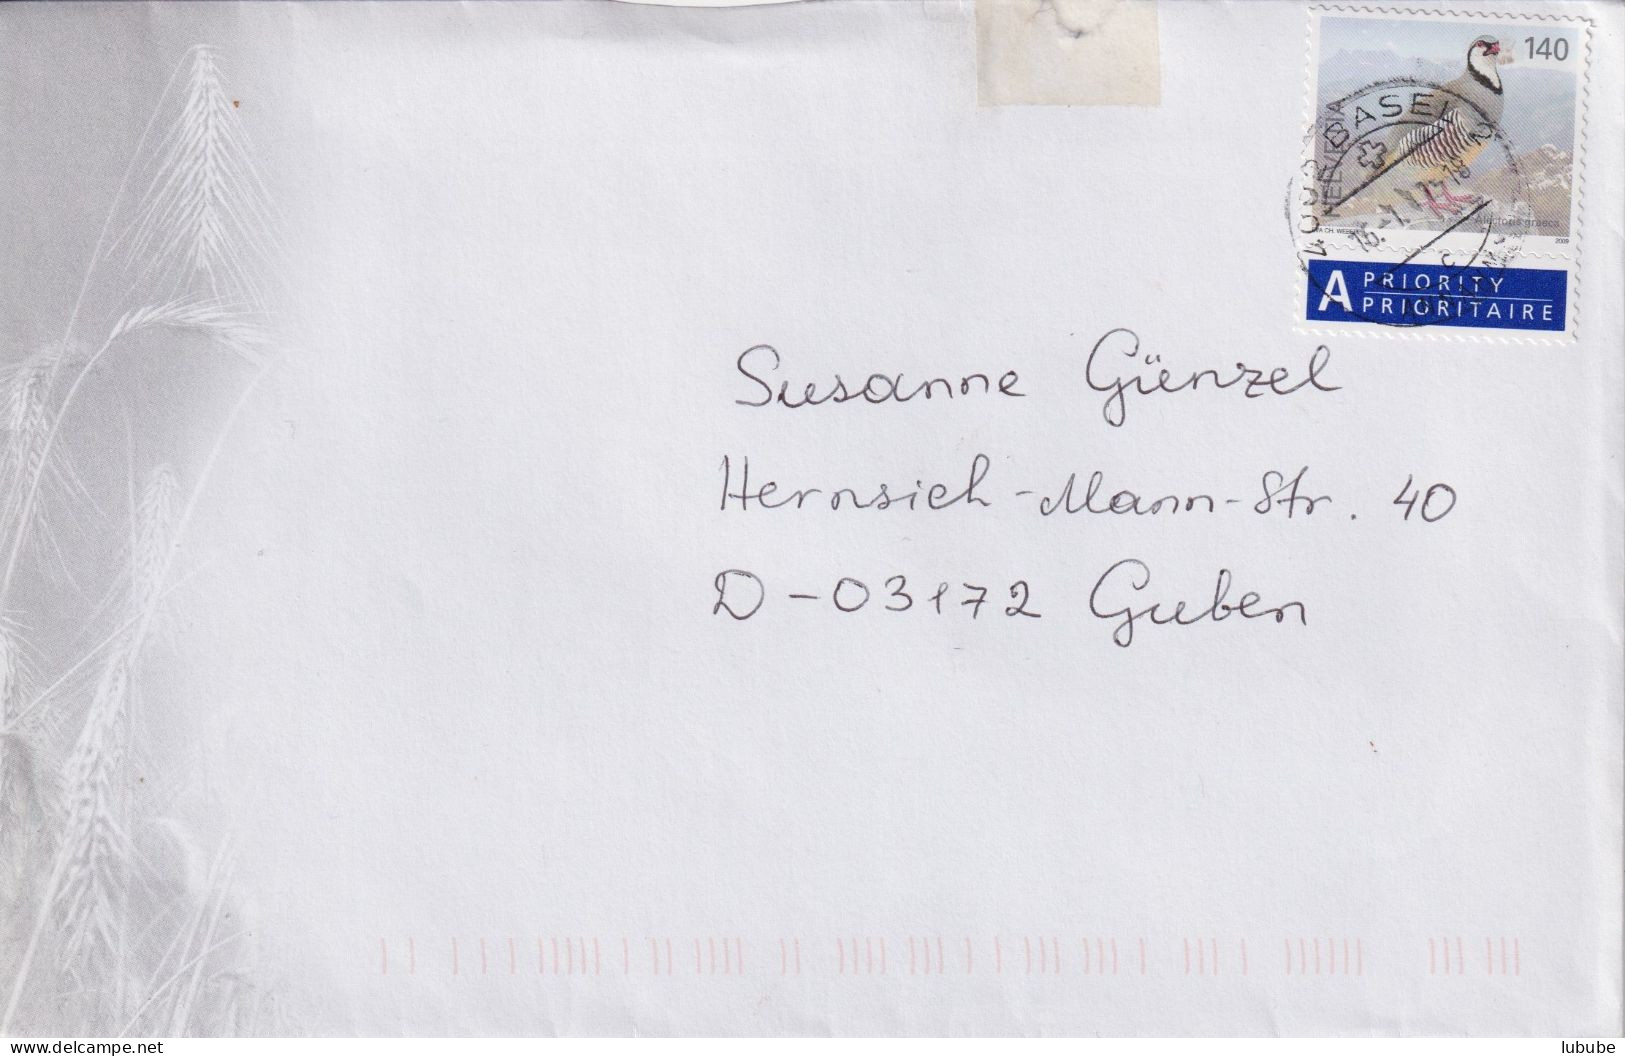 140
HELVETIA
Alectoris graeca
2009
BASEL 2
A PRIORITY
PRIORITAIRE
Susanne Günzel
Hernsich-Mann-Str. 40
D-03172 Guben
www.delcampe.net
lubube